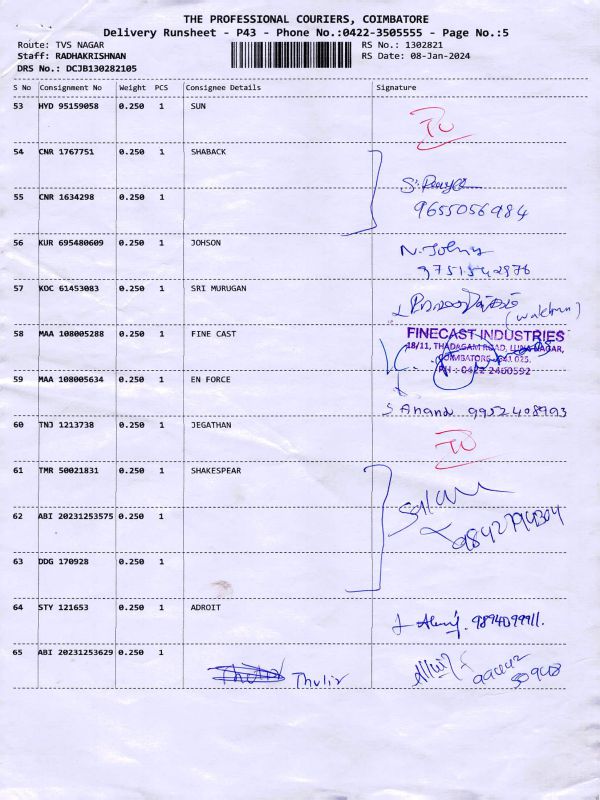 THE PROFESSIONAL COURIERS, COIMBATORE
Delivery Runsheet - P43 - Phone No.:0422-3505555 - Page No.:5
Route: TVS NAGAR RS No.: 1302821
Staff: RADHAKRISHNAN RS Date: 08-Jan-2024
DRS No.: DCJB130282105
S No Consignment No Weight PCS Consignee Details Signature
53 HYD 95159058 0.250 1 SUN
54 CNR 1767751 0.250 1 SHABACK
55 CNR 1634298 0.250 1
9655056984
56 KUR 695480609 0.250 1 JOHSON
9751542876
57 KOC 61453083 0.250 1 SRI MURUGAN
58 MAA 108005288 0.250 1 FINE CAST FINECAST INDUSTRIES
18/11, THADAGAM ROAD, LUNA NAGAR,
COIMBATORE - 641 025.
PH : 0422 2400592
59 MAA 108005634 0.250 1 EN FORCE
S Anand 9952408993
60 TNJ 1213738 0.250 1 JEGATHAN
61 TMR 50021831 0.250 1 SHAKESPEAR
62 ABI 20231253575 0.250 1
63 DDG 170928 0.250 1
64 STY 121653 0.250 1 ADROIT
9894099911.
65 ABI 20231253629 0.250 1
Thulir